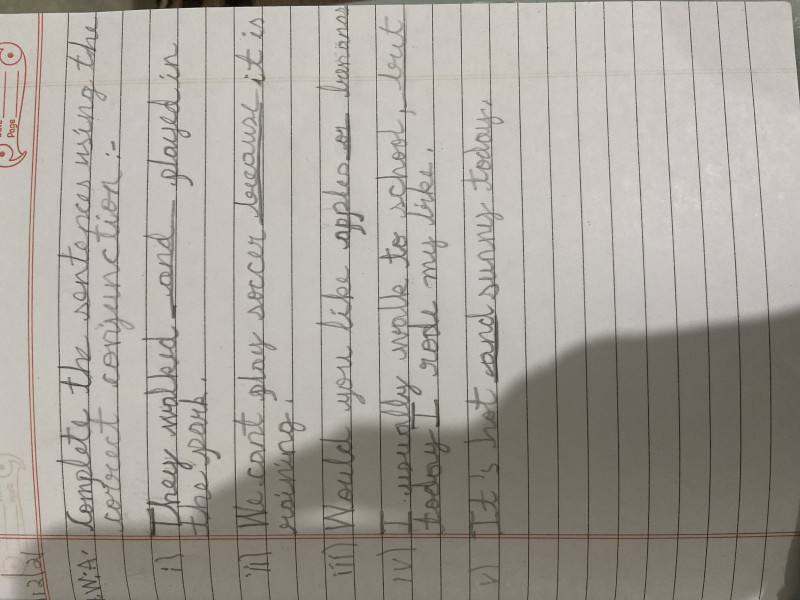 Page
12/21
W.A. Complete the sentences using the
correct conjunction :-
i) They walked and played in
the park.
ii) We cant play soccer because it is
raining.
iii) Would you like apples or bananas
iv) I usually walk to school, but
today I rode my bike.
v) It's hot and sunny today.